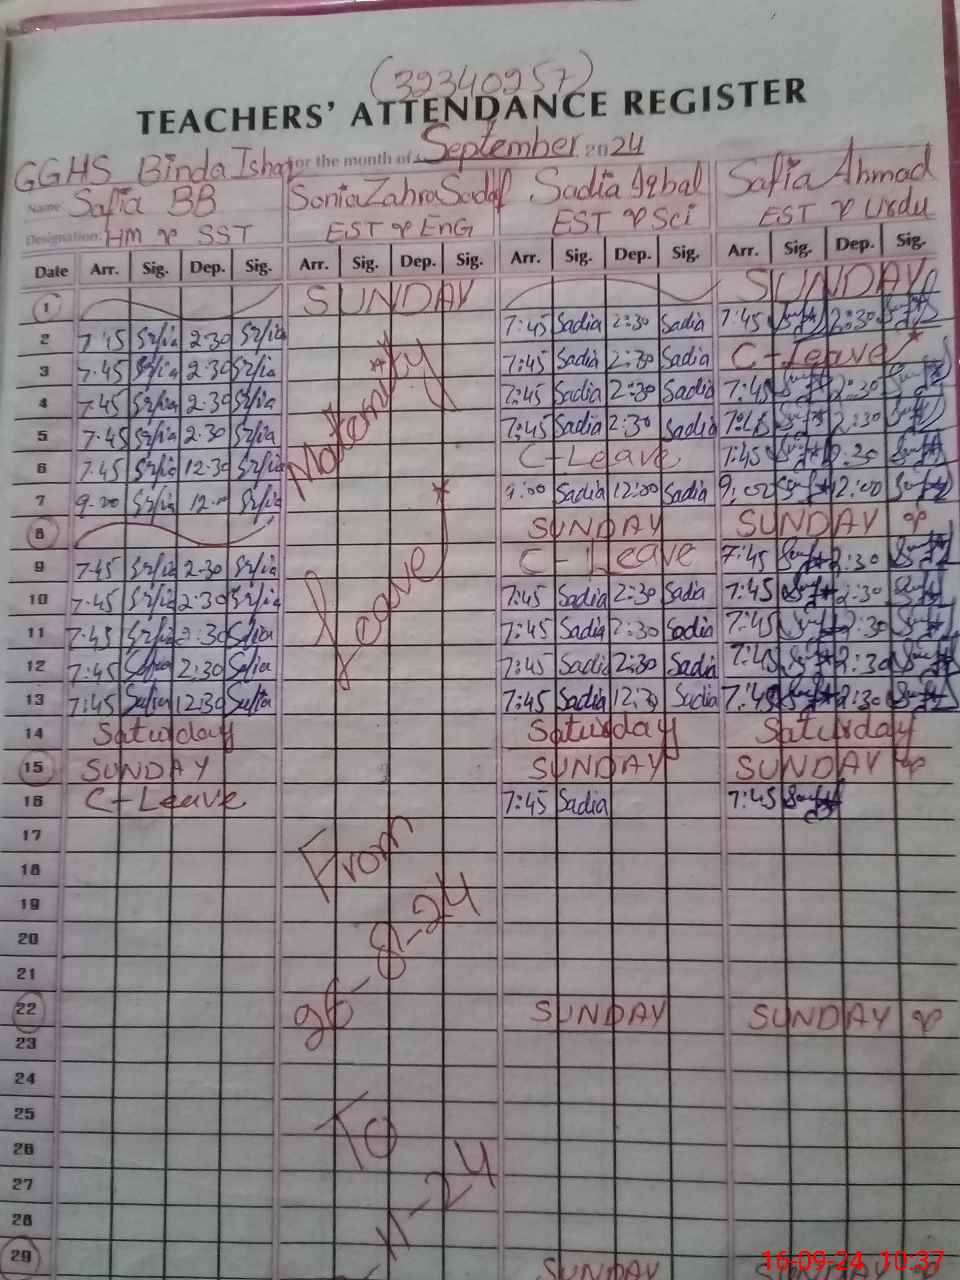 (32340257)
TEACHERS' ATTENDANCE REGISTER
GGHS Binda Ishaq for the month of September 2024
Name: Safia BB Sonia Zahra Sadaf Sadia Iqbal Safia Ahmad
Designation: HM SST EST ENG EST Sci EST Urdu
Date Arr. Sig. Dep. Sig. Arr. Sig. Dep. Sig. Arr. Sig. Dep. Sig. Arr. Sig. Dep. Sig.
1 SUNDAY SUNDAY
2 7:45 Safia 2:30 Safia 7:45 Sadia 2:30 Sadia 7:45 2:30
3 7:45 Safia 2:30 Safia 7:45 Sadia 2:30 Sadia C-Leave
4 7:45 Safia 2:30 Safia 7:45 Sadia 2:30 Sadia 7:45 2:30
5 7:45 Safia 2:30 Safia 7:45 Sadia 2:30 Sadia 7:45 2:30
6 7:45 Safia 12:30 Safia C-Leave 7:45
7 9:00 Safia 12:00 Safia 9:00 Sadia 12:00 Sadia 9:00 12:00
8 SUNDAY SUNDAY
9 7:45 Safia 2:30 Safia C-Leave 7:45 2:30
10 7:45 Safia 2:30 Safia 7:45 Sadia 2:30 Sadia 7:45 2:30
11 7:45 Safia 2:30 Safia 7:45 Sadia 2:30 Sadia 7:45 2:30
12 7:45 Safia 2:30 Safia 7:45 Sadia 2:30 Sadia 7:45 2:30
13 7:45 Safia 12:30 Safia 7:45 Sadia 12:30 Sadia 7:45 2:30
14 Saturday Saturday Saturday
15 SUNDAY SUNDAY SUNDAY
16 C-Leave 7:45 Sadia 7:45
17
18
19
20
21
22 SUNDAY SUNDAY
23
24
25
26
27
28
29 SUNDAY SUNDAY
Maternity
Leave
From
26-8-24
To
11-24
16-09-24 10:37